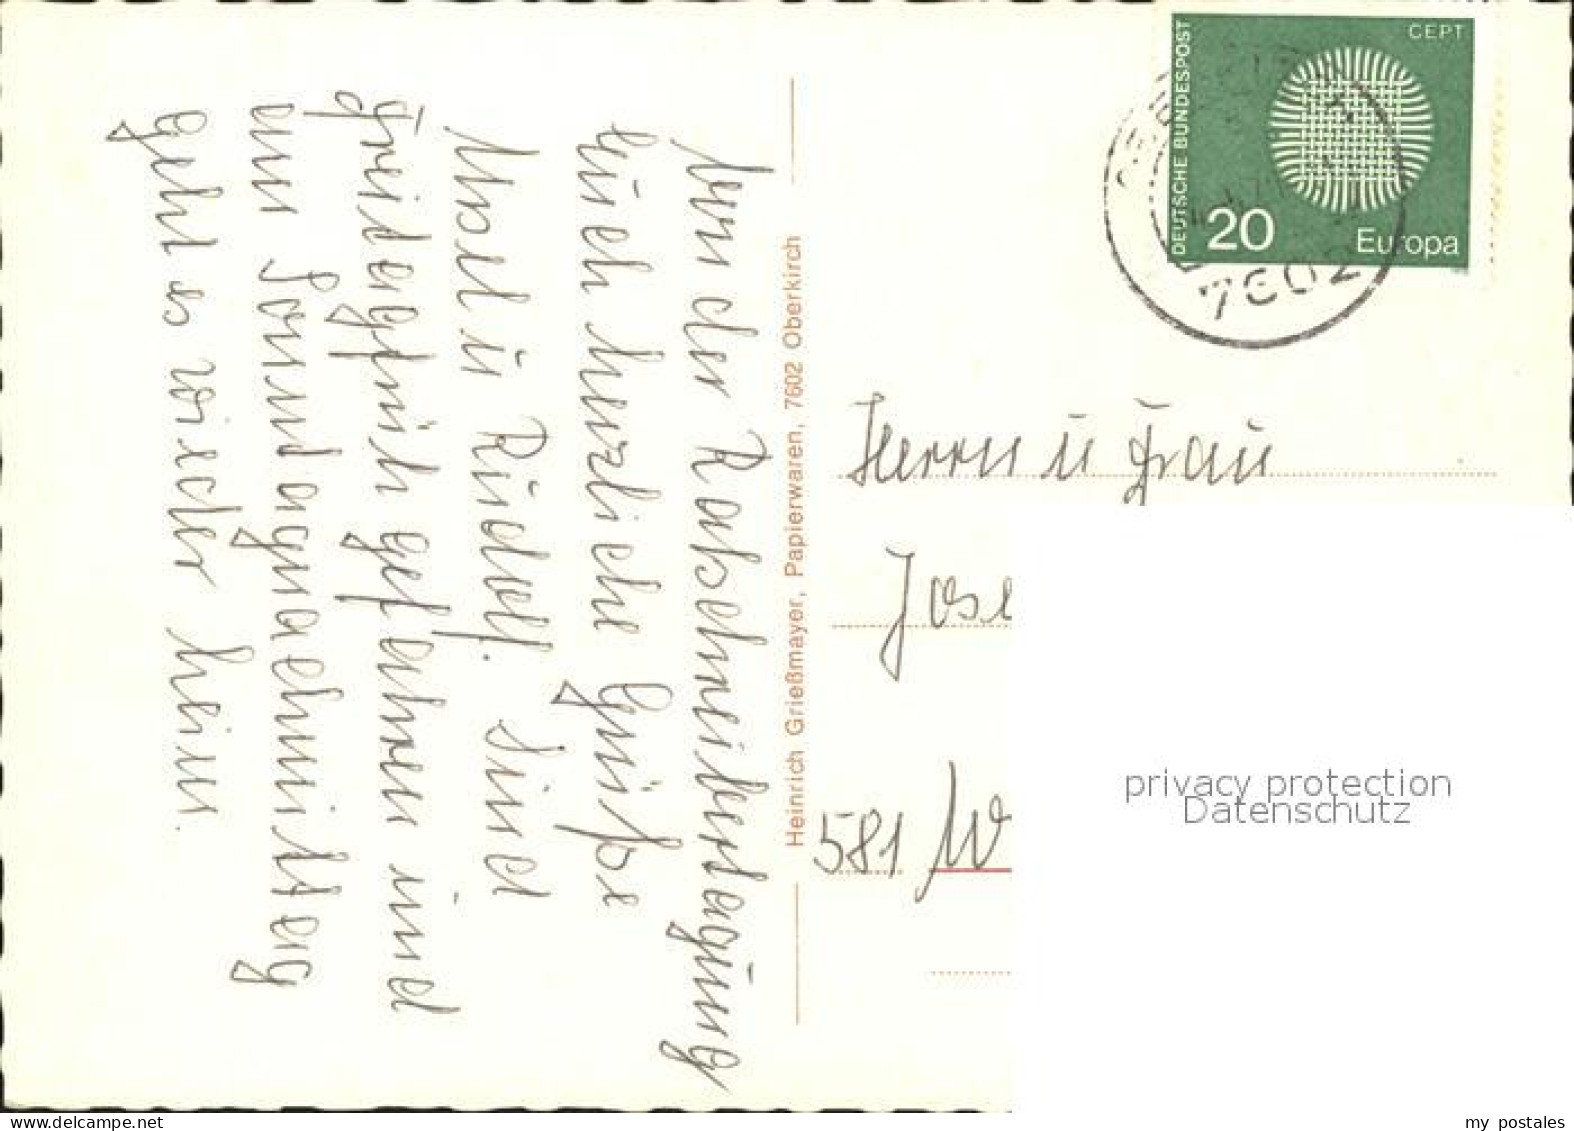 von der Ratschreibertagung
Euch herzliche Grüße
Ursel u Rudolf. Sind
freidagfrüh gefahren und
am Sonndagnachmittag
geht es wieder heim.
Heinrich Grießmayer, Papierwaren, 7602 Oberkirch
DEUTSCHE BUNDESPOST
CEPT
20
Europa
7602
Herrn u Frau
Jose
581 W
privacy protection
Datenschutz
www.delcampe.net
my postales